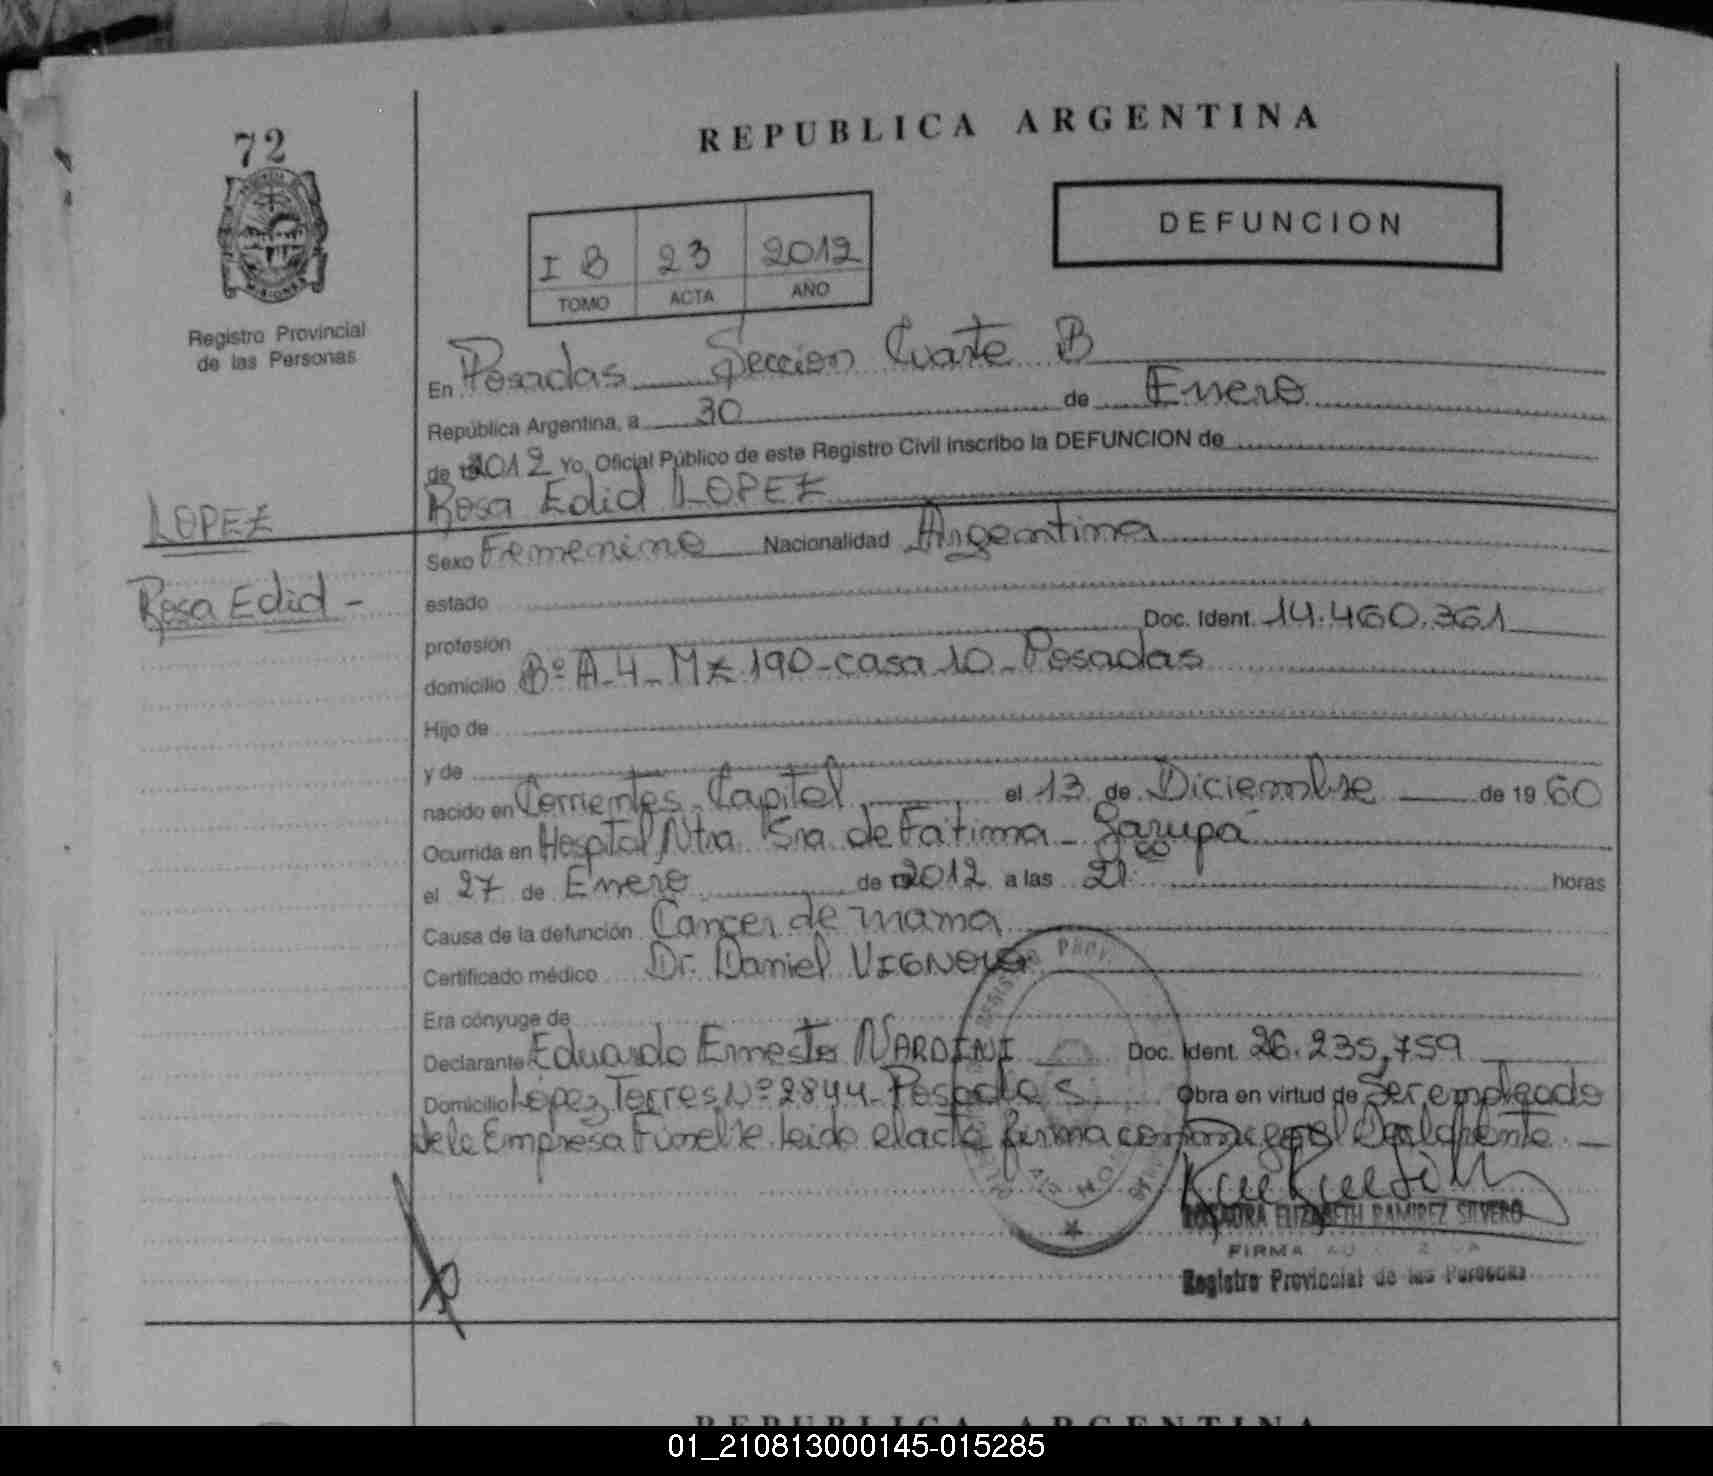 72
REPUBLICA ARGENTINA
DEFUNCION
I B 23 2012
TOMO ACTA AÑO
Registro Provincial
de las Personas
En Posadas Seccion Cuarta B
República Argentina, a 30 de Enero
de 2012 Yo, Oficial Público de este Registro Civil inscribo la DEFUNCION de
Rosa Edid LOPEZ
LOPEZ
Rosa Edid -
Sexo Femenino Nacionalidad Argentina
estado
profesión Doc. Ident. 14.460.361
domicilio Bº A-4-Mz 190-casa 10-Posadas
Hijo de
y de
nacido en Corrientes, Capital, el 13 de Diciembre de 1960
Ocurrida en Hospital Ntra Sra de Fátima - Garupá
el 27 de Enero de 2012 a las 21: horas
Causa de la defunción Cancer de mama
Certificado médico Dr. Daniel
Era cónyuge de
Declarante Eduardo Ernesto NARDINI Doc. Ident. 26.235.759
Domicilio López Torres Nº 2844-Posadas Obra en virtud de Ser empleado
de la Empresa Fúnebre. Leido el acta firma conmigo el Declarante. —
ROSAURA ELIZABETH RAMIREZ SILVERO
FIRMA
Registro Provincial de las Personas
REPUBLICA ARGENTINA
01_210813000145-015285